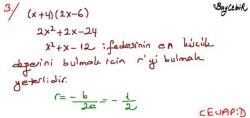 3/ (x+4)(2x-6) BayÇebir
2x²+2x-24
x²+x-12 ifadesinin en küçük
değerini bulmak için r'yi bulmak
yeterlidir.
r = -b/2a = -1/2
CEVAP:D